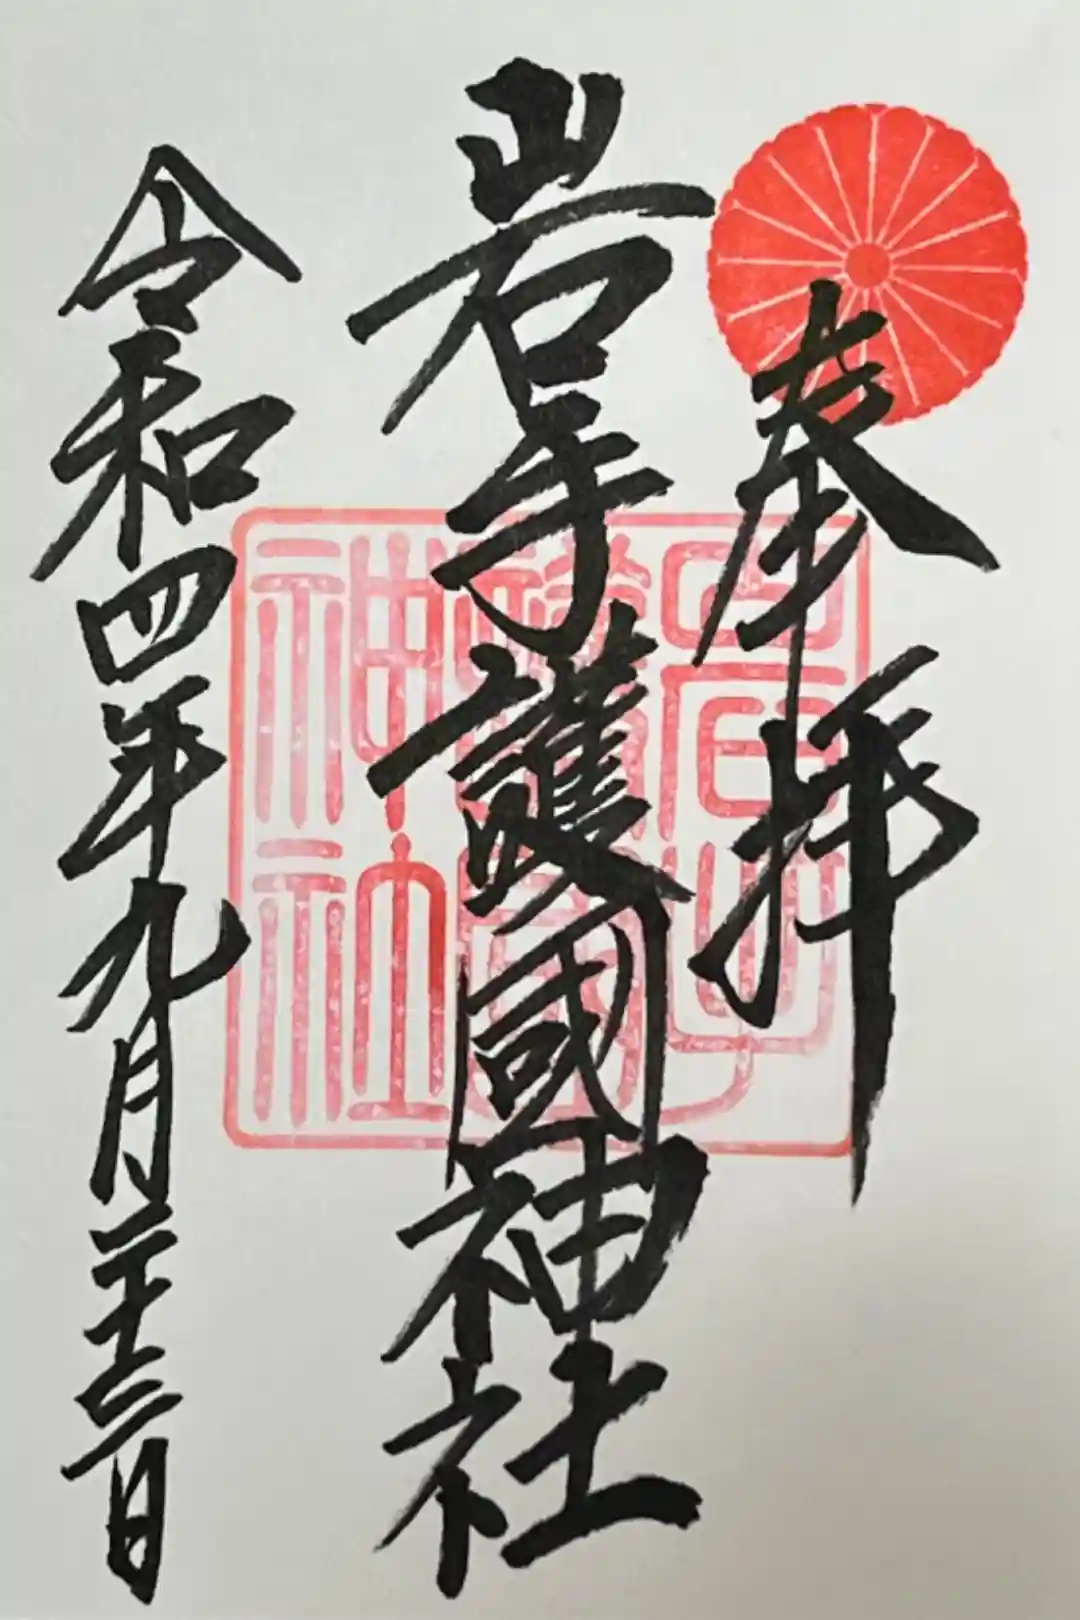 奉拝
岩手護國神社
令和四年九月二十三日
嵒手
護國
神社